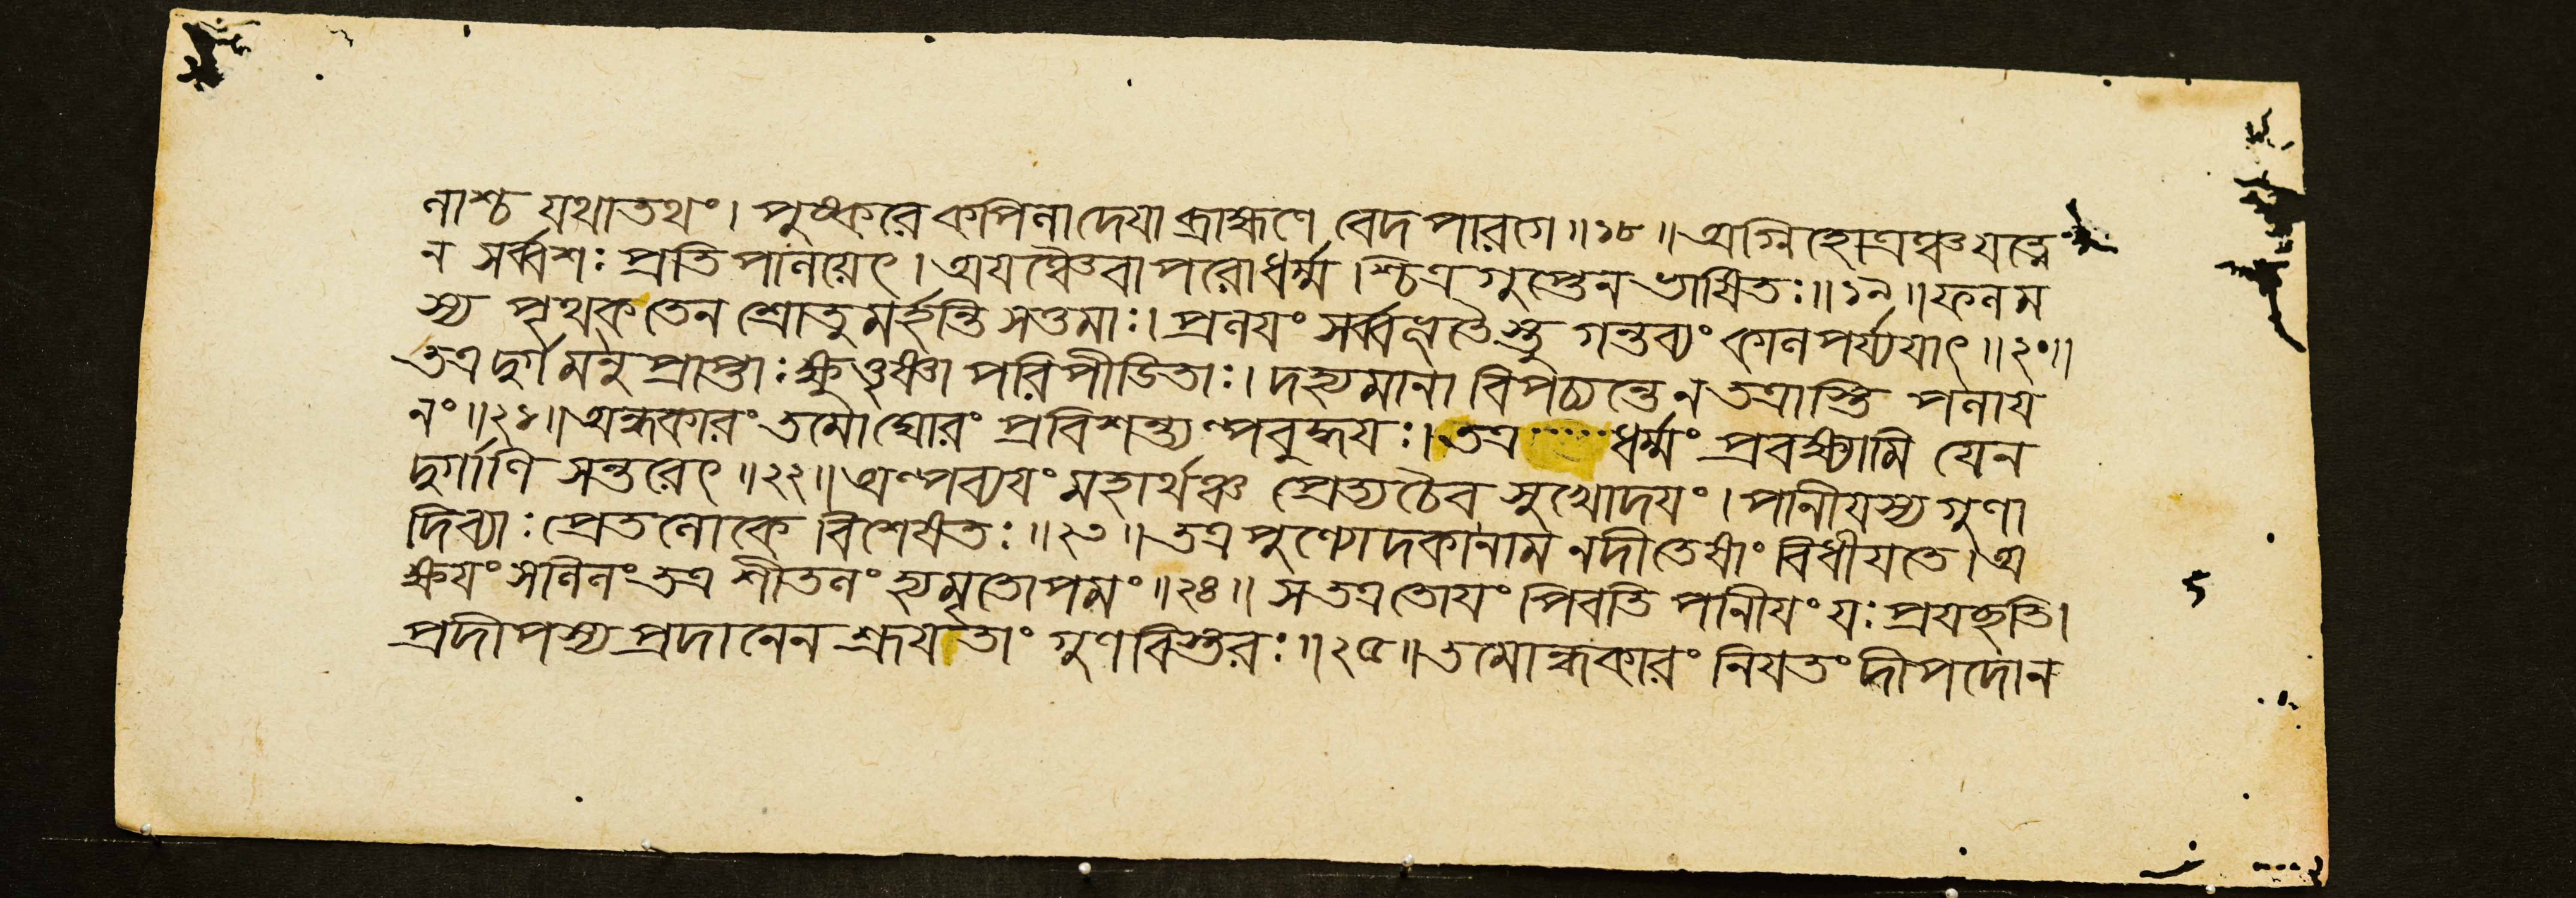 নাশ্চ যথাতথং। পুষ্করে কপিলা দেয়া ব্রাহ্মণে বেদপারগে॥১৮॥ অগ্নিহোত্রঞ্চ যত্নে
ন সর্ব্বশঃ প্রতিপালয়েৎ। অযঞ্চৈবাপরোধর্ম্ম শ্চিত্রগুপ্তেন ভাষিতঃ॥১৯॥ ফলম
স্য পৃথক তেন শ্রোতুমর্হন্তি সত্তমাঃ। প্রলযং সর্ব্বভূতৈস্তু গন্তব্যং কালপর্য্যযাৎ॥২০॥
তত্র দুর্গমনুপ্রাপ্তাঃ ক্ষুত্তৃষ্ণা পরিপীডিতাঃ। দহ্যমানা বিপচ্যন্তে ন তত্রাস্তি পলায
নং॥২১॥ অন্ধকারং তমোঘোরং প্রবিশন্ত্যল্পবুদ্ধযঃ। তত্র ..... ধর্ম্মং প্রবক্ষ্যামি যেন
দুর্গাণি সন্তরেৎ॥২২॥ অল্পব্যযং মহার্থঞ্চ প্রেত্যচৈব সুখোদযং। পানীযস্য গুণা
দিব্যাঃ প্রেতলোকে বিশেষতঃ॥২৩॥ তত্র পুণ্যোদকানাম নদীতেষাং বিধীযতে। অ
ক্ষযং সলিলং তত্র শীতলং হ্যমৃতোপমং॥২৪॥ স তত্র তোযং পিবতি পানীযং যঃ প্রযচ্ছতি।
প্রদীপস্য প্রদানেন শ্রূযতাং গুণবিস্তরঃ॥২৫॥ তমোন্ধকারং নিযতং দীপদোন